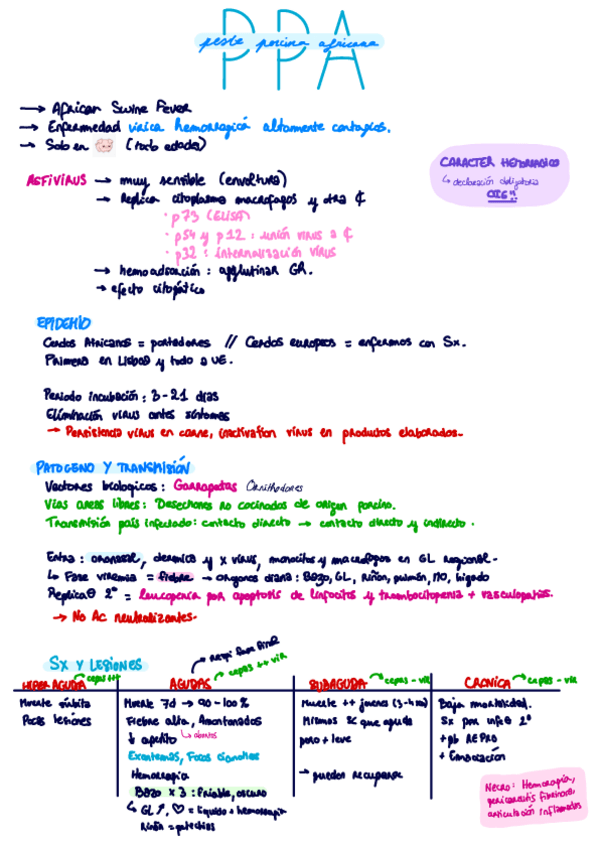 PPA
peste porcina africana
→ African Swine Fever
→ Enfermedad vírica hemorragica altamente contagios.
→ Solo en (todo edades)
CARACTER HEMORRAGICO
↳ declaración obligatoria
OIE!!
ASFIVIRUS → muy sensible (envoltura)
→ Replica citoplasma macrofagos y otra ¢
· p73 (ELISA)
· p54 y p12 : unión virus a ¢
· p32 : internalisación virus
→ hemoadsorción : agglutinar GR.
→ efecto citopático
EPIDEMIO
Cerdos Africanos = portadores // Cerdos europeos = enfermos con Sx.
Primero en Lisboa y todo a UE.
Periodo incubación : 3-21 dias
Eliminación virus antes síntomas
→ Persistencia virus en carne, inactivation virus en productos elaborados.
PATOGENO Y TRANSMISIÓN
Vectores biologicos : Garrapatas Ornithodores
Vias areas libres : Desechones no cocinados de origen porcino.
Transmisión país infectado : contacto directo → contacto directo y indirecto.
Entra : oronasal, dermica y x virus, monocitos y macrofagos en GL regional.
↳ Fase viremia = fiebre → organos diana : Bazo, GL, riñon, pulmón, MO, higado
Replica 2° = leucopenia por apoptosis de linfocitos y trombocitopenia + vasculopatias.
→ No Ac neutralizantes.
SX Y LESIONES
HIPERAGUDA cepas +++
Muerte súbita
Pocas lesiones
AGUDAS cepas ++ vir
Muerte 7d → 90-100%
Fiebre alta, Amontonados
↓ apetito ↳ abortos
Exantemas, Focos cianoticos
Hemorragia
Bazo x 3 : friable, oscuro
↳ GL↑, ♡ = liquido + hemorragia
Riñón = petechias
SUBAGUDA cepas - vir
Muerte ++ jovenes
Mismos SC que aguda
pero + leve
→ pueden recuperarse
CRONICA cepas - vir
Baja mortalidad.
Sx por infe 2°
+ pb REPRO
+ Emaciación
Necro : Hemorragia,
pericarditis fibrinosa,
articulación inflamados